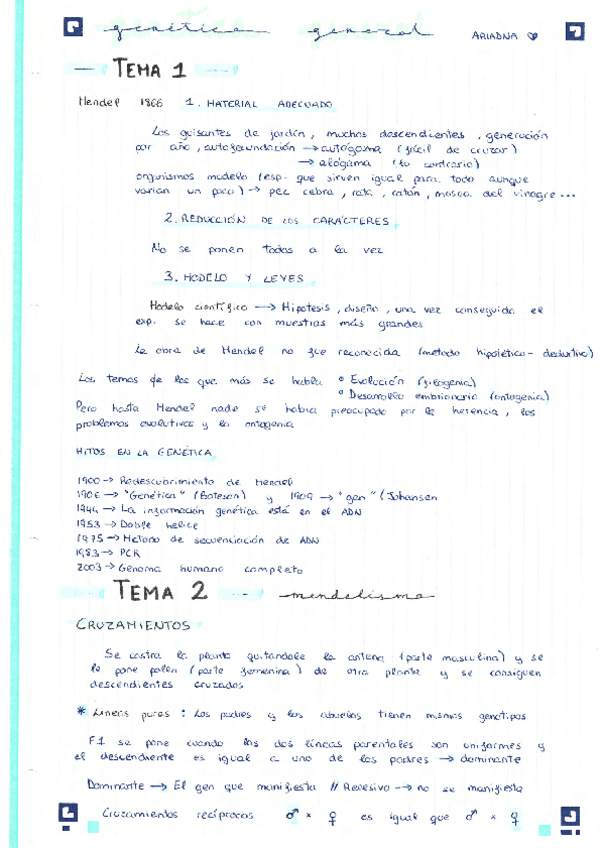 genética general ARIADNA
TEMA 1
Mendel 1866 1. MATERIAL ADECUADO
Los guisantes de jardín, muchos descendientes, generación
por año, autofecundación → autógama (fácil de cruzar)
→ alógama (lo contrario)
organismos modelo (esp. que sirven igual para todo aunque
varían un poco) → pez cebra, rata, ratón, mosca del vinagre...
2. REDUCCIÓN DE LOS CARÁCTERES
No se ponen todos a la vez
3. MODELO Y LEYES
Modelo científico → Hipótesis, diseño, una vez conseguido el
exp. se hace con muestras más grandes
La obra de Mendel no fue reconocida (metodo hipotético-deductivo)
Los temas de los que más se habla ° Evolución (filogenia)
° Desarrollo embrionario (ontogenia)
Pero hasta Mendel nadie se había preocupado por la herencia, los
problemas evolutivos y la ontogenia
HITOS EN LA GENÉTICA
1900 → Redescubrimiento de Mendel
1906 → "Genética" (Bateson) y 1909 → "gen" (Johansen
1944 → La información genética está en el ADN
1953 → Doble helice
1975 → Metodo de secuenciación de ADN
1983 → PCR
2003 → Genoma humano completo
TEMA 2 mendelismo
CRUZAMIENTOS
Se castra la planta quitandole la antena (parte masculina) y se
le pone polen (parte femenina) de otra planta y se consiguen
descendientes cruzados
* Lineas puras : Los padres y los abuelos tienen mismos genotipos
F1 se pone cuando las dos líneas parentales son uniformes y
el descendiente es igual a uno de los padres → dominante
Dominante → El gen que manifiesta // Recesivo → no se manifiesta
Cruzamientos recíprocos ♂ x ♀ es igual que ♂ x ♀